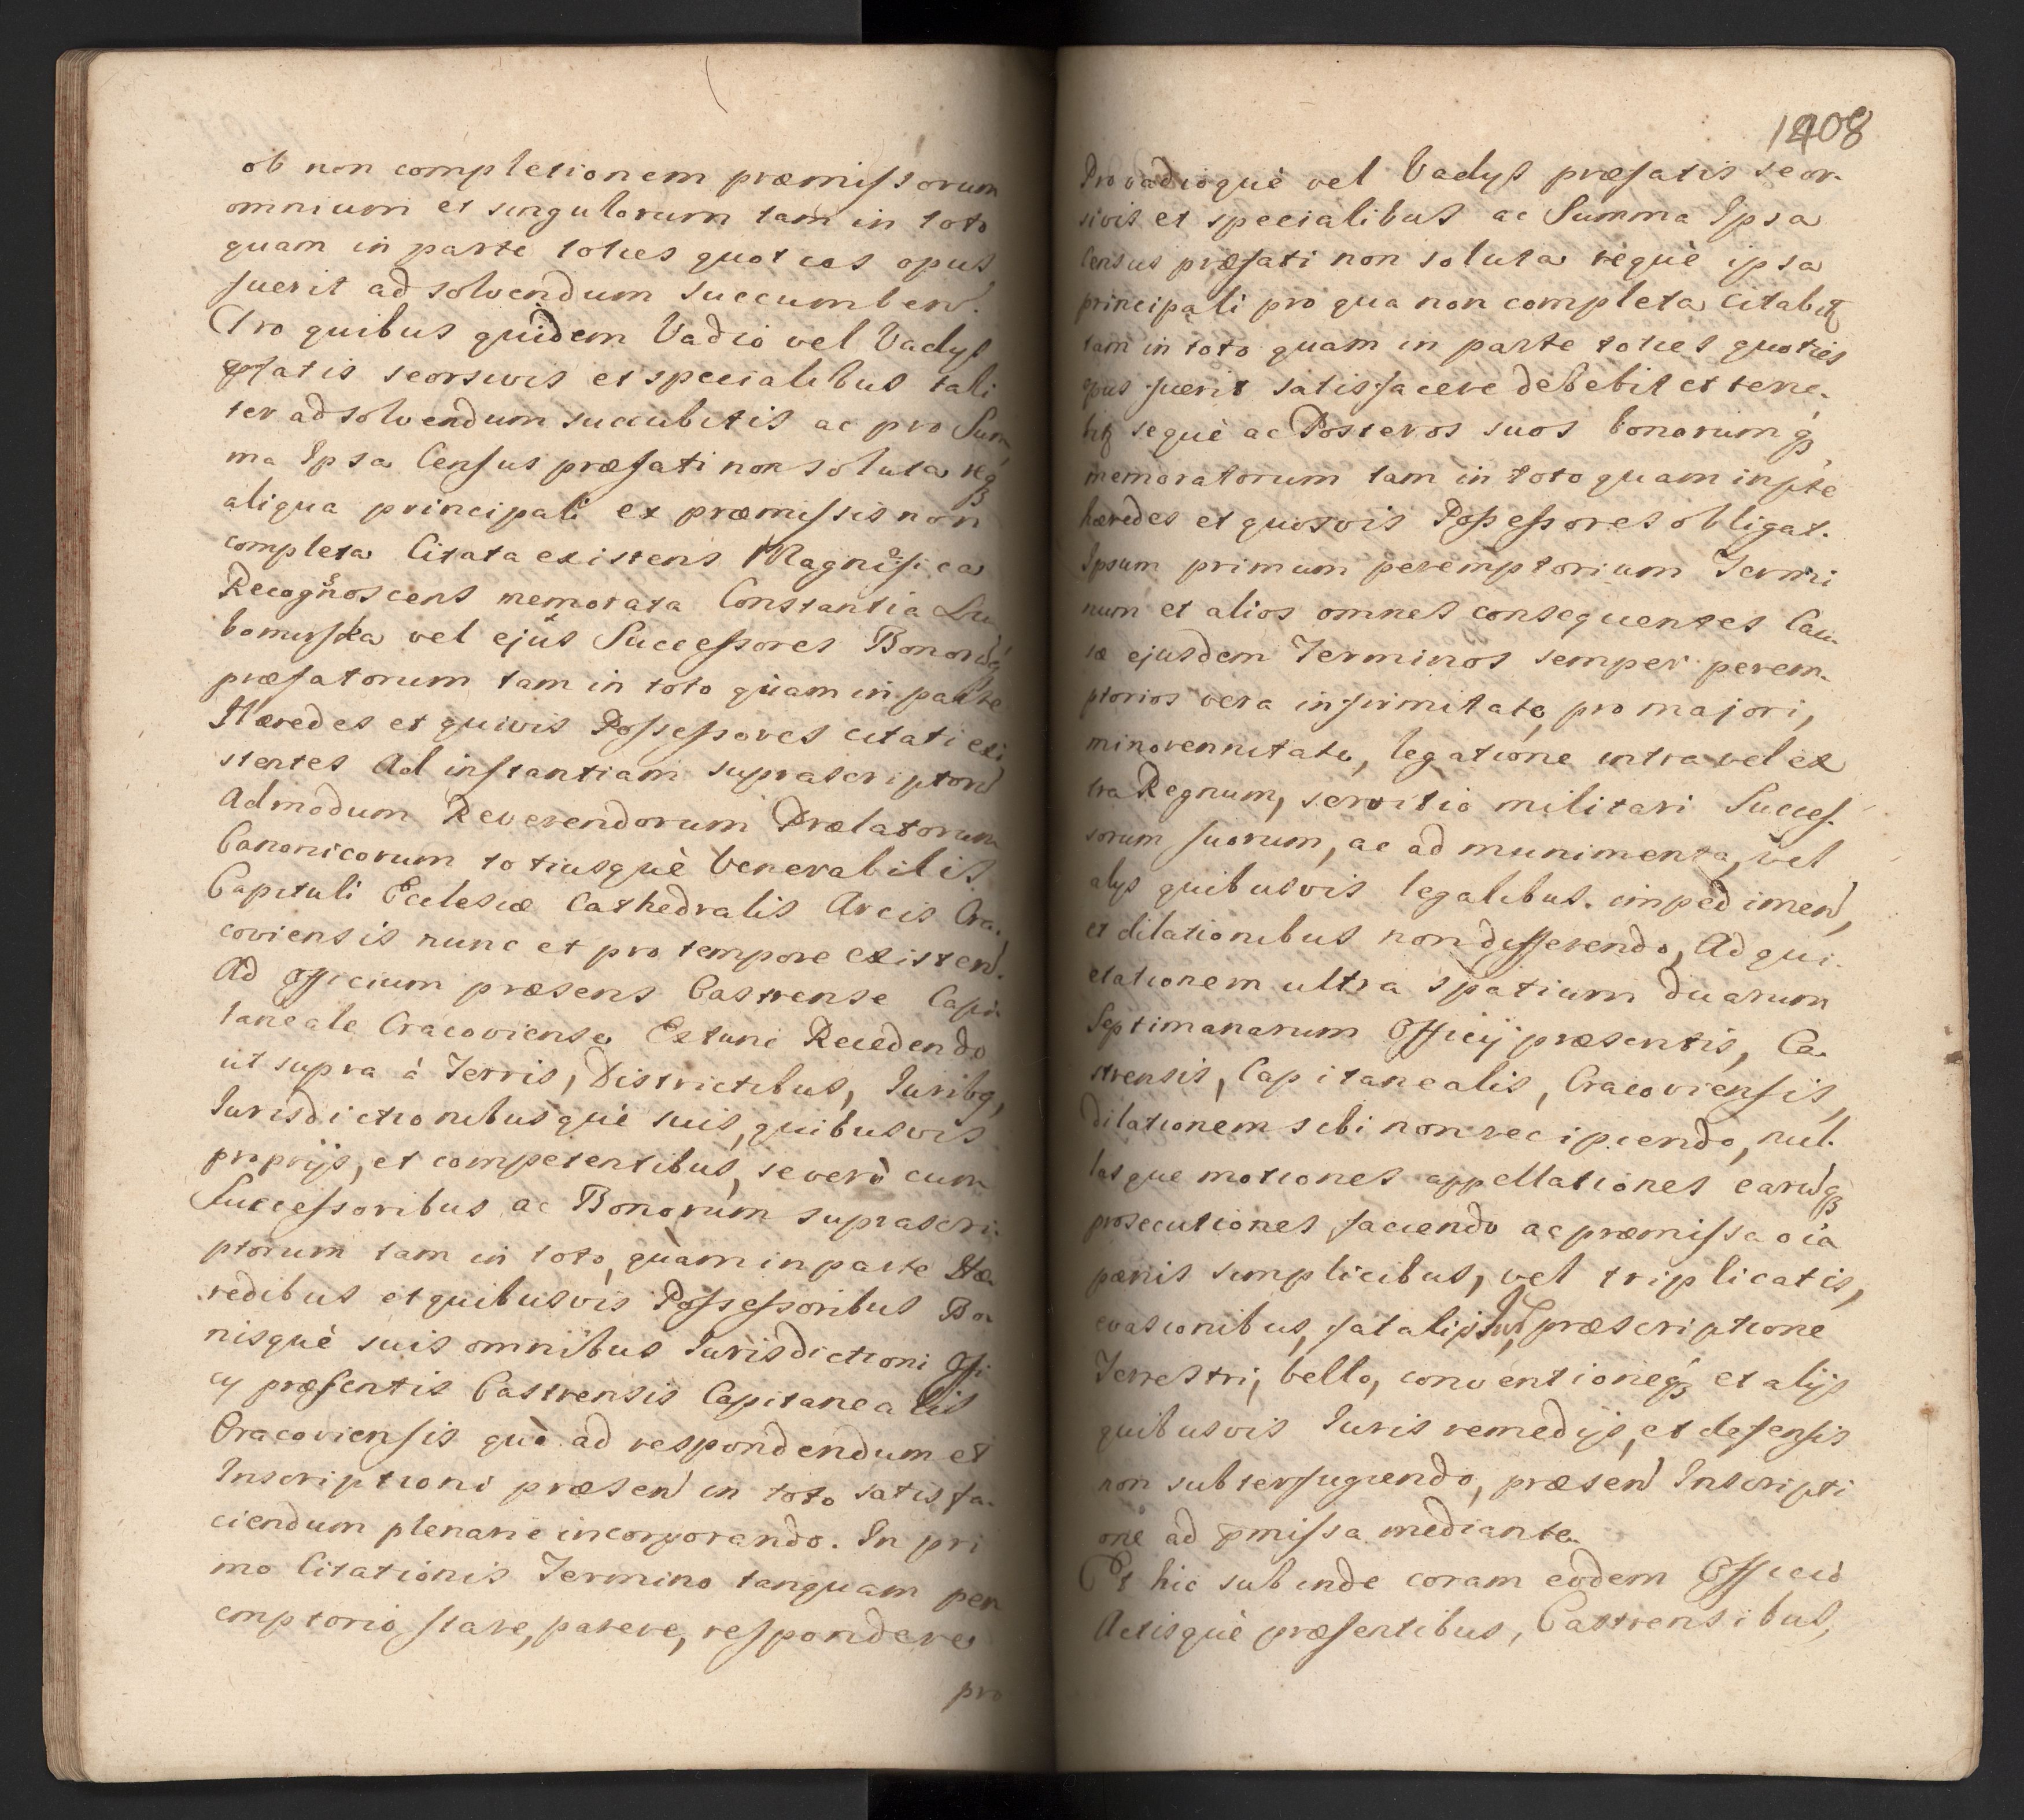 ob non completionem præmissorum
omnium et singulorum tam in toto
quam in parte toties quoties opus
fuerit ad solvendum succumben.
Pro quibus quidem Vadio vel Vadys
pfatis seorsivis et specialibus tali
ter ad solvendum succubitis ac pro Sum
ma Ipsa Census præfati non soluta reqȝ
aliqua principali ex præmissis non
completa Citata existens Magnifica
Recognoscens memorata Constantia Lu
bomirska vel ejus Successores Bonorūqȝ
præfatorum tam in toto quam in parte
Hæredes et quivis Possessores citati exi
stentes Ad instantiam suprascriptorū
Admodum Reverendorum Prælatorum
Canonicorum totiusquè Venerabilis
Capituli Ecclesiæ Cathedralis Arcis Cra.
coviensis nunc et pro tempore existen.
Ad Officium præsens Castrense Capi.
taneale Cracoviense Extunc Recedendo
ut supra à Terris, Districtibus, Juribq,
Jurisdictionibusquè suis, quibusvis
proprijs, et competentibus, se verò cum
Successoribus ac Bonorum suprascri.
ptorum tam in toto, quàm in parte Hæ
redibus et quibusvis Possessoribus Bo.
nisquè suis omnibus Jurisdictioni Offi
cy præsentis Castrensis Capitanealis
Cracoviensis quò ad respondendum et
Inscriptioni præsen in toto satisfa.
ciendum plenariè incorporando. In pri
mo Citationis Termino tanquam per
emptorio stare, parere, respondere
pro
1408
Pro vadioquè vel Vadys præfatis seor.
sivis et specialibus ac Summa Ipsa
Census præfati non soluta requè ipsa
principali pro qua non completa citabitȝ
tam in toto quam in parte toties quoties
opus fuerit satisfacere debebit et tene.
bitȝ sequè ac Posteros suos bonorumqȝ
memoratorum tam in toto quam in pte
hæredes et quosvis Possessores obligat.
Ipsum primum peremptorium Termi
num et alios omnes consequentes Cau
sæ ejusdem Terminos semper perem.
ptorios vera infirmitate, pro majori,
minorennitate, legatione intra vel ex
tra Regnum, servitio militari Succes.
sorum suorum, ac ad munimenta, vel
alys quibusvis legalibus. impedimen,
et dilationibus non differendo, Ad qui.
etationem ultra spatium duarum
Septimanarum Officij præsentis, Ca.
strensis, Capitanealis, Cracoviensis,
dilationem sibi non recipiendo, nul.
lasque motiones appellationes earūqȝ
prosecutiones faciendo ac præmissa oīa
pænis simplicibus, vel triplicatis,
evasionibus, fatalijs, præscriptione
Terrestri, bello, conventioneqȝ et alijs
quibusvis Juris remedijs, et defensis
non subterfugiendo, præsen Inscripti
one ad pmissa mediante.
Et hic subinde coram eodem Officio
Actisquè præsentibus, Castrensibus,